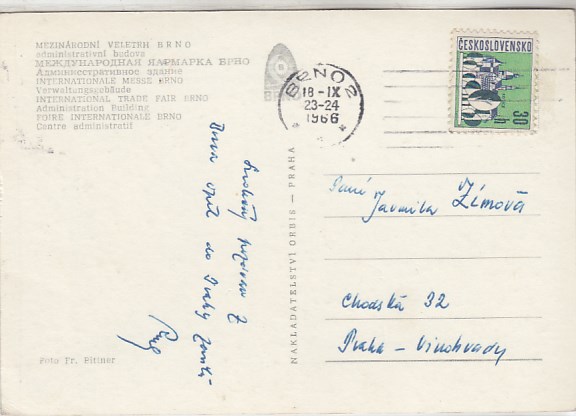 MEZINÁRODNÍ VELETRH BRNO
administrativní budova
МЕЖДУНАРОДНАЯ ЯРМАРКА БРНО
Административное здание
INTERNATIONALE MESSE BRNO
Verwaltungsgebäude
INTERNATIONAL TRADE FAIR BRNO
Administration Building
FOIRE INTERNATIONALE BRNO
Centre administratif
BRNO 2
18-IX
23-24
1966
ČESKOSLOVENSKO
30 h
Srdečný pozdrav z
Brna opět do Prahy
NAKLADATELSTVÍ ORBIS — PRAHA
Paní
Jarmila Zímová
Chodská 32
Praha - Vinohrady
Foto Fr. Pltiner